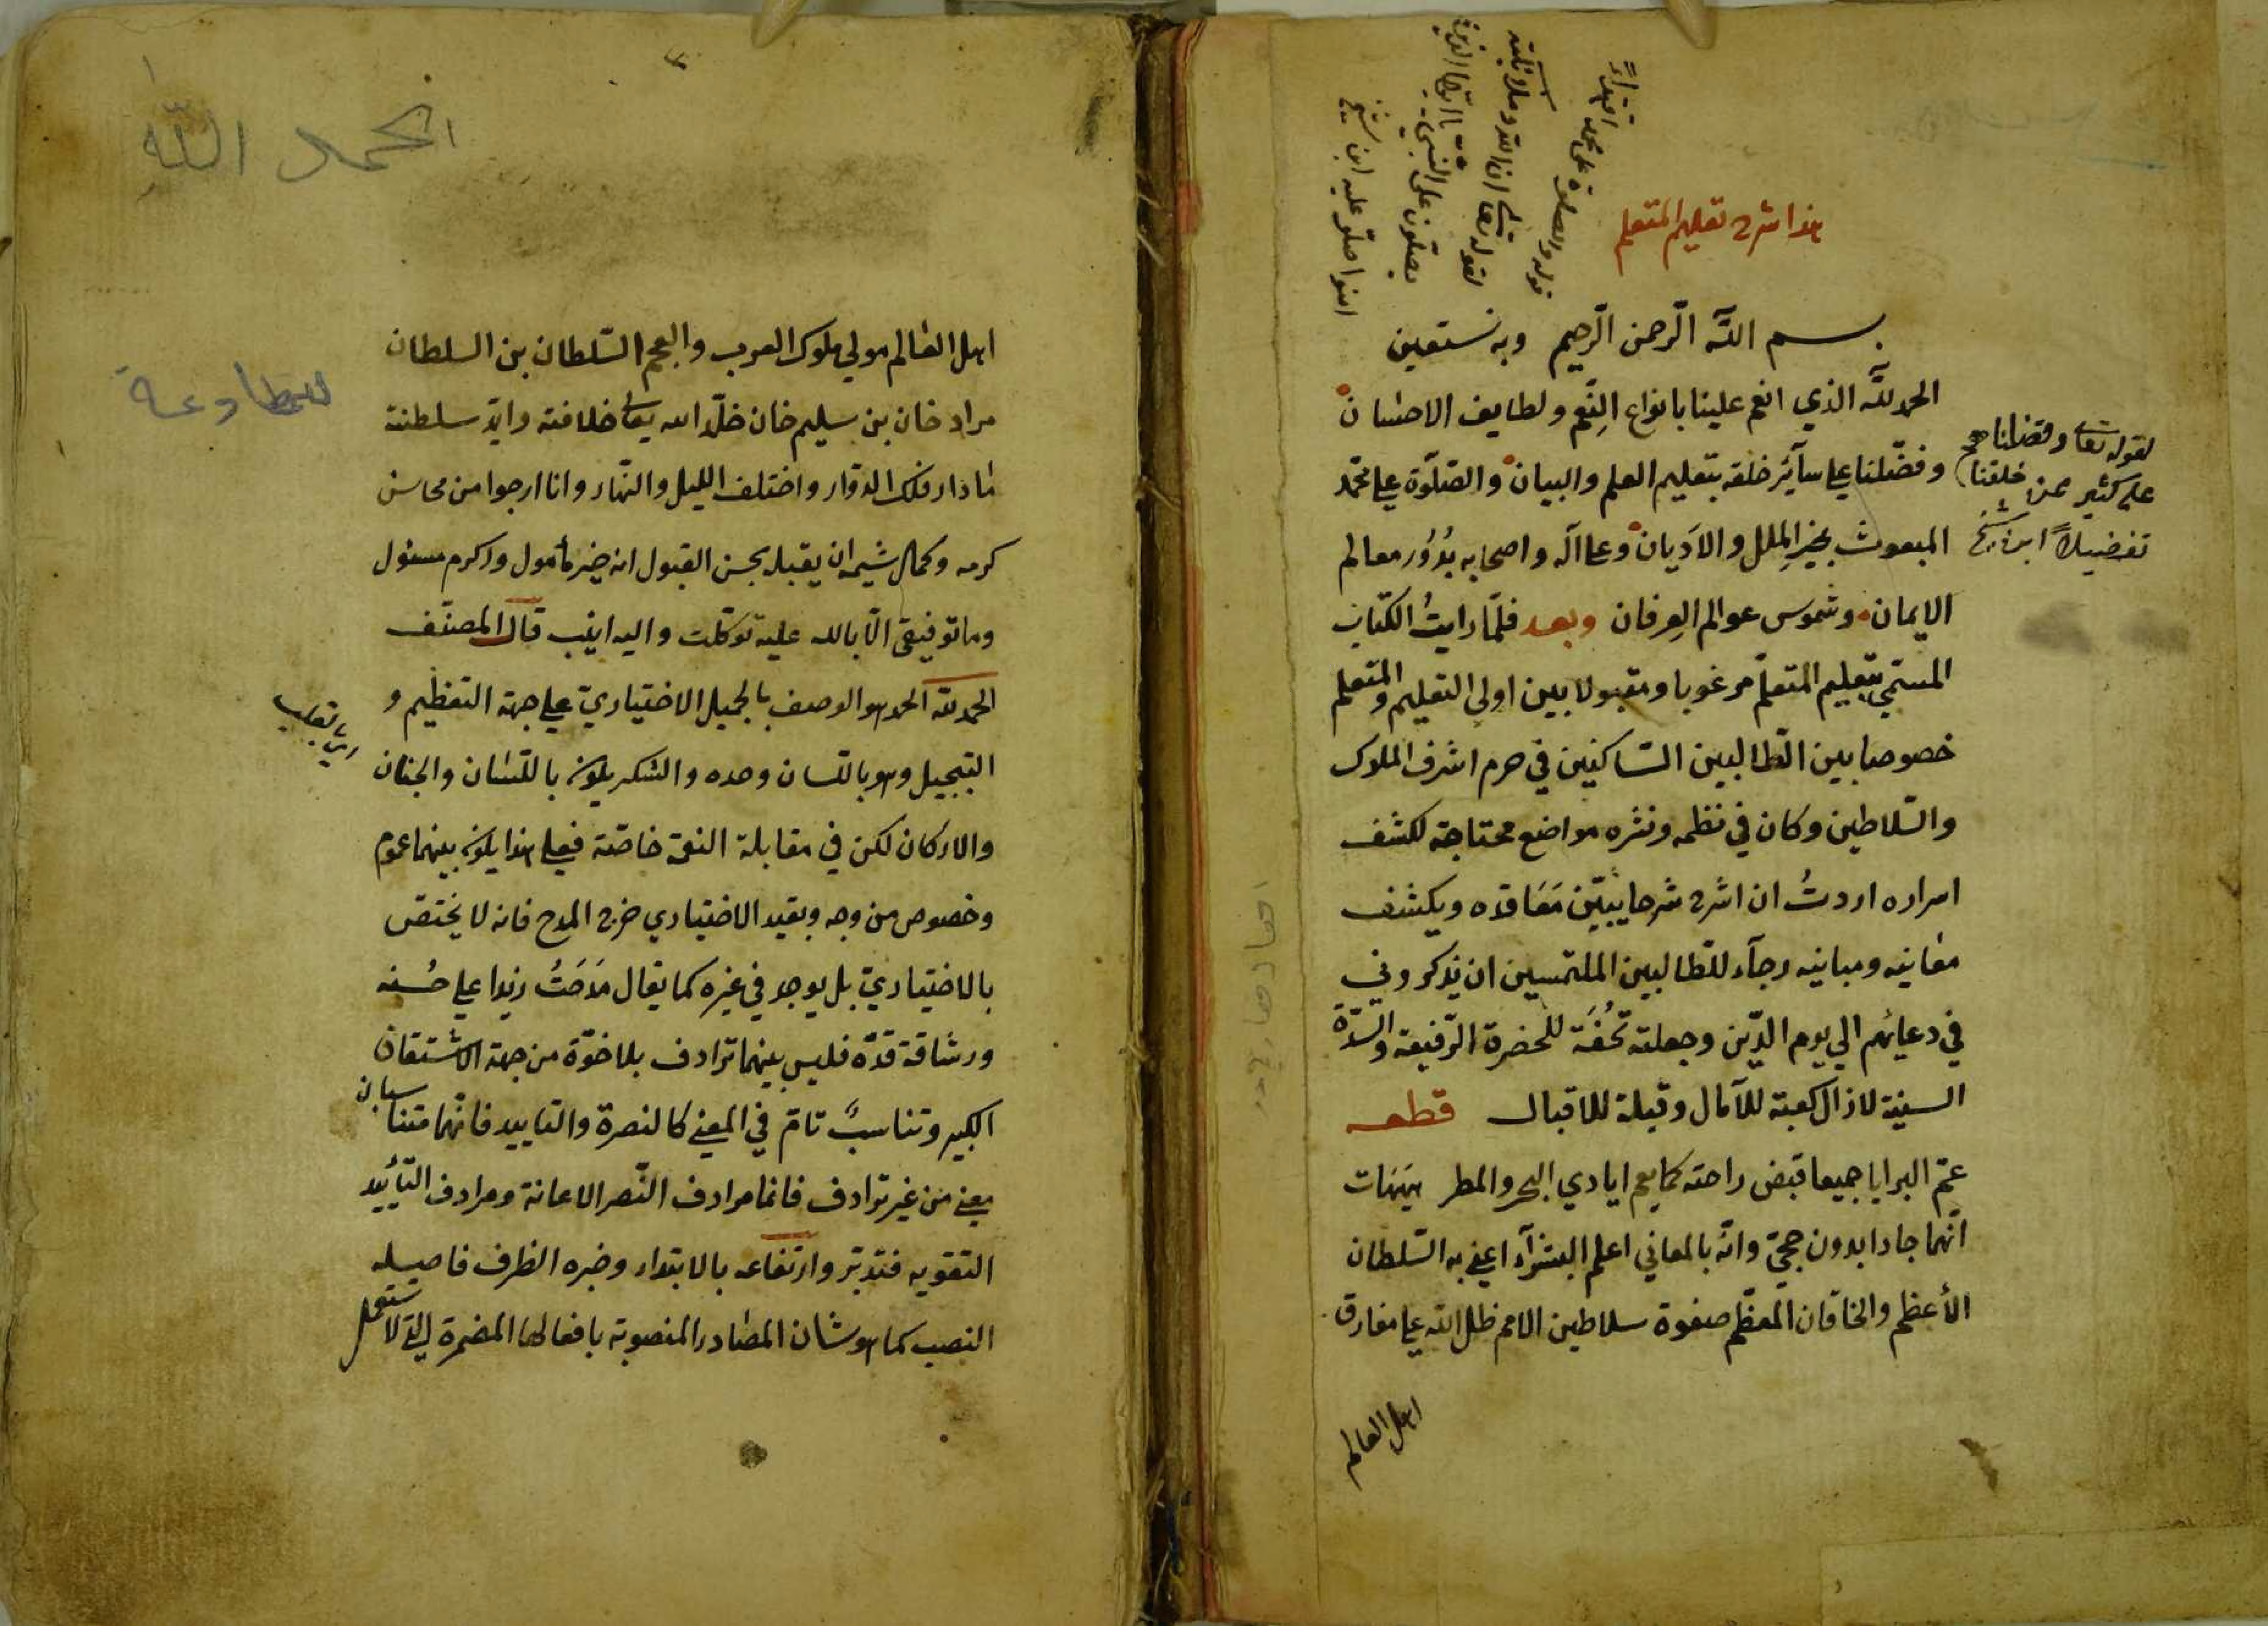 هذا شرح تعليم المتعلم
بسم الله الرّحمن الرّحيم وبه نستعين
الحمد لله الذي انعم علينا بانواع النِّعم ولطايف الاحسان
وفضّلنا علي سآئر خلقه بتعليم العلم والبيان والصّلوة علي محمّد
المبعوث بخير المِلل والاديان وعلي اله واصحابه بُدُور معالم
الايمان وشموس عوالم العِرفان وبعد فلمّا رايتُ الكتاب
المسمّي بتعليم المتعلّم مرغوبا ومقبولا بين اولي التعليم والمتعلم
خصوصا بين الطّالبين السّاكنين في حرم اشرف الملوك
والسّلاطين وكان في نظمه ونثره مواضع محتاجة لكشف
اسراره اردتُ ان اشرح شرحا يبيّن مَعَاقده ويكشف
معانيه ومبانيه رجآء للطّالبين الملتمسين ان يذكروني
في دعائهم الي يوم الدّين وجعلته تُحْفَة للحضرة الرّفيعة والسّدّة
السنية لازال كعبة للآمال وقبلة للاقبال قطعه
عمّ البرايا جميعا قبض راحته كما يعم ايادي البحر والمطر هيهات
انهما جادا بدون حجيّ وانّه بالمعاني اعلم البشرآء اعني به السّلطان
الأعظم والخاقان المعظّم صفوة سلاطين الامم ظل الله علي مفارق
اهل العالم
لقوله تعالى وفضلناهم
على كثير ممن خلقنا
تفضيلاً ابن شيخ
قوله والصلوة على محمد اقتداءً
لقوله تعالى ان الله وملائكته
يصلّون على النبي يا ايّها الذين
امنوا صلّو عليه ابن شيخ
الحمد الله
اهل العالم مولي ملوك العرب والعجم السّلطان بن السلطان
مراد خان بن سليم خان خلّد الله تعالى خلافته وايّد سلطنته
ما دار فلك الدوّار واختلف الليل والنّهار وانا ارجوا من محاسن
كرمه وكمال شيمه ان يقبله بحسن القبول انه خير مأمول واكرم مسئول
وما توفيقي الّا بالله عليه توكّلت واليه انيب قال المصنّف
الحمد لله الحمد هو الوصف بالجميل الاختياريّ علي جهة التعظيم و
التبجيل وهو باللسان وحده والشكر يكون باللّسان والجنان
والاركان لكن في مقابلة النعمة خاصّة فعلي هذا يكون بينهما عموم
وخصوص من وجه وبقيد الاختياري خرج المدح فانه لا يختصّ
بالاختياريّ بل يوجد في غيره كما يقال مَدَحَتُ زيدا علي حُسنه
ورشاقة قدّه فليس بينهما ترادف بلاخوّة من جهة الاشتقاق
الكبير وتناسبٌ تامّ في المعني كالنصرة والتاييد فانّهما متناسبان
معني من غير ترادف فانما مرادف النّصر الاعانة ومرادف التّأييد
التقوية فتدبّر وارتفاعه بالابتداء وخبره الظرف فاصله
النصب كما هو شان المصادر المنصوبة بافعالها المضمرة التي لا ستعمل